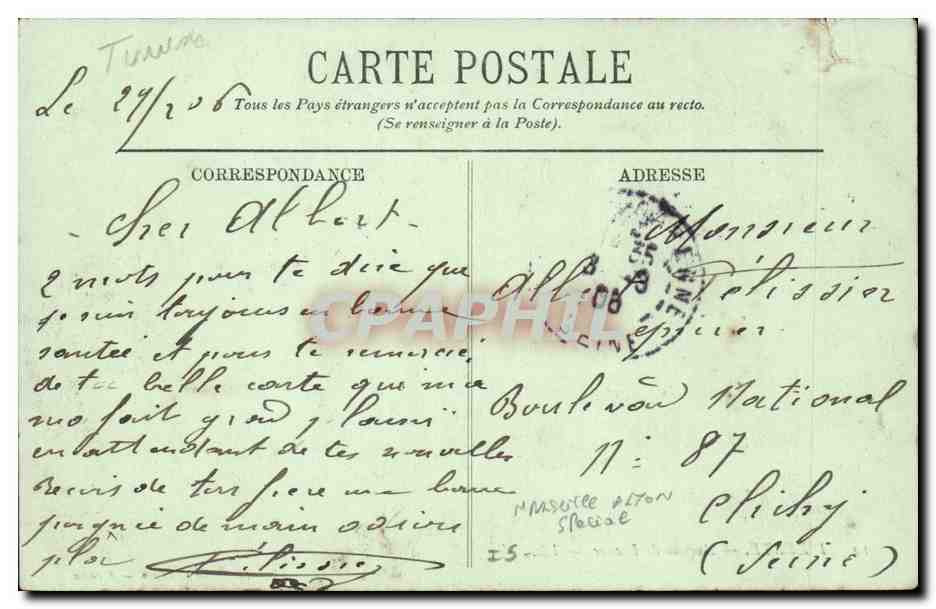 Le 29/2 06
CARTE POSTALE
Tous les Pays étrangers n'acceptent pas la Correspondance au recto.
(Se renseigner à la Poste).
CORRESPONDANCE
- Cher Albert -
2 mots pour te dire que
je suis toujours en bonne
santée et pous te remercié
de ta belle carte qui ma
mo fait grend plaisir
en attendant de tes nouvelles
Recois de ton frere une bonne
poignée de main
Pélissier
ADRESSE
Monsieur
Albert Pélissier
epicier
Boulevard National
N: 87
Clichy
(Seine)
MARSEILLE A LYON
SPECIAL
IS
CPAPHIL